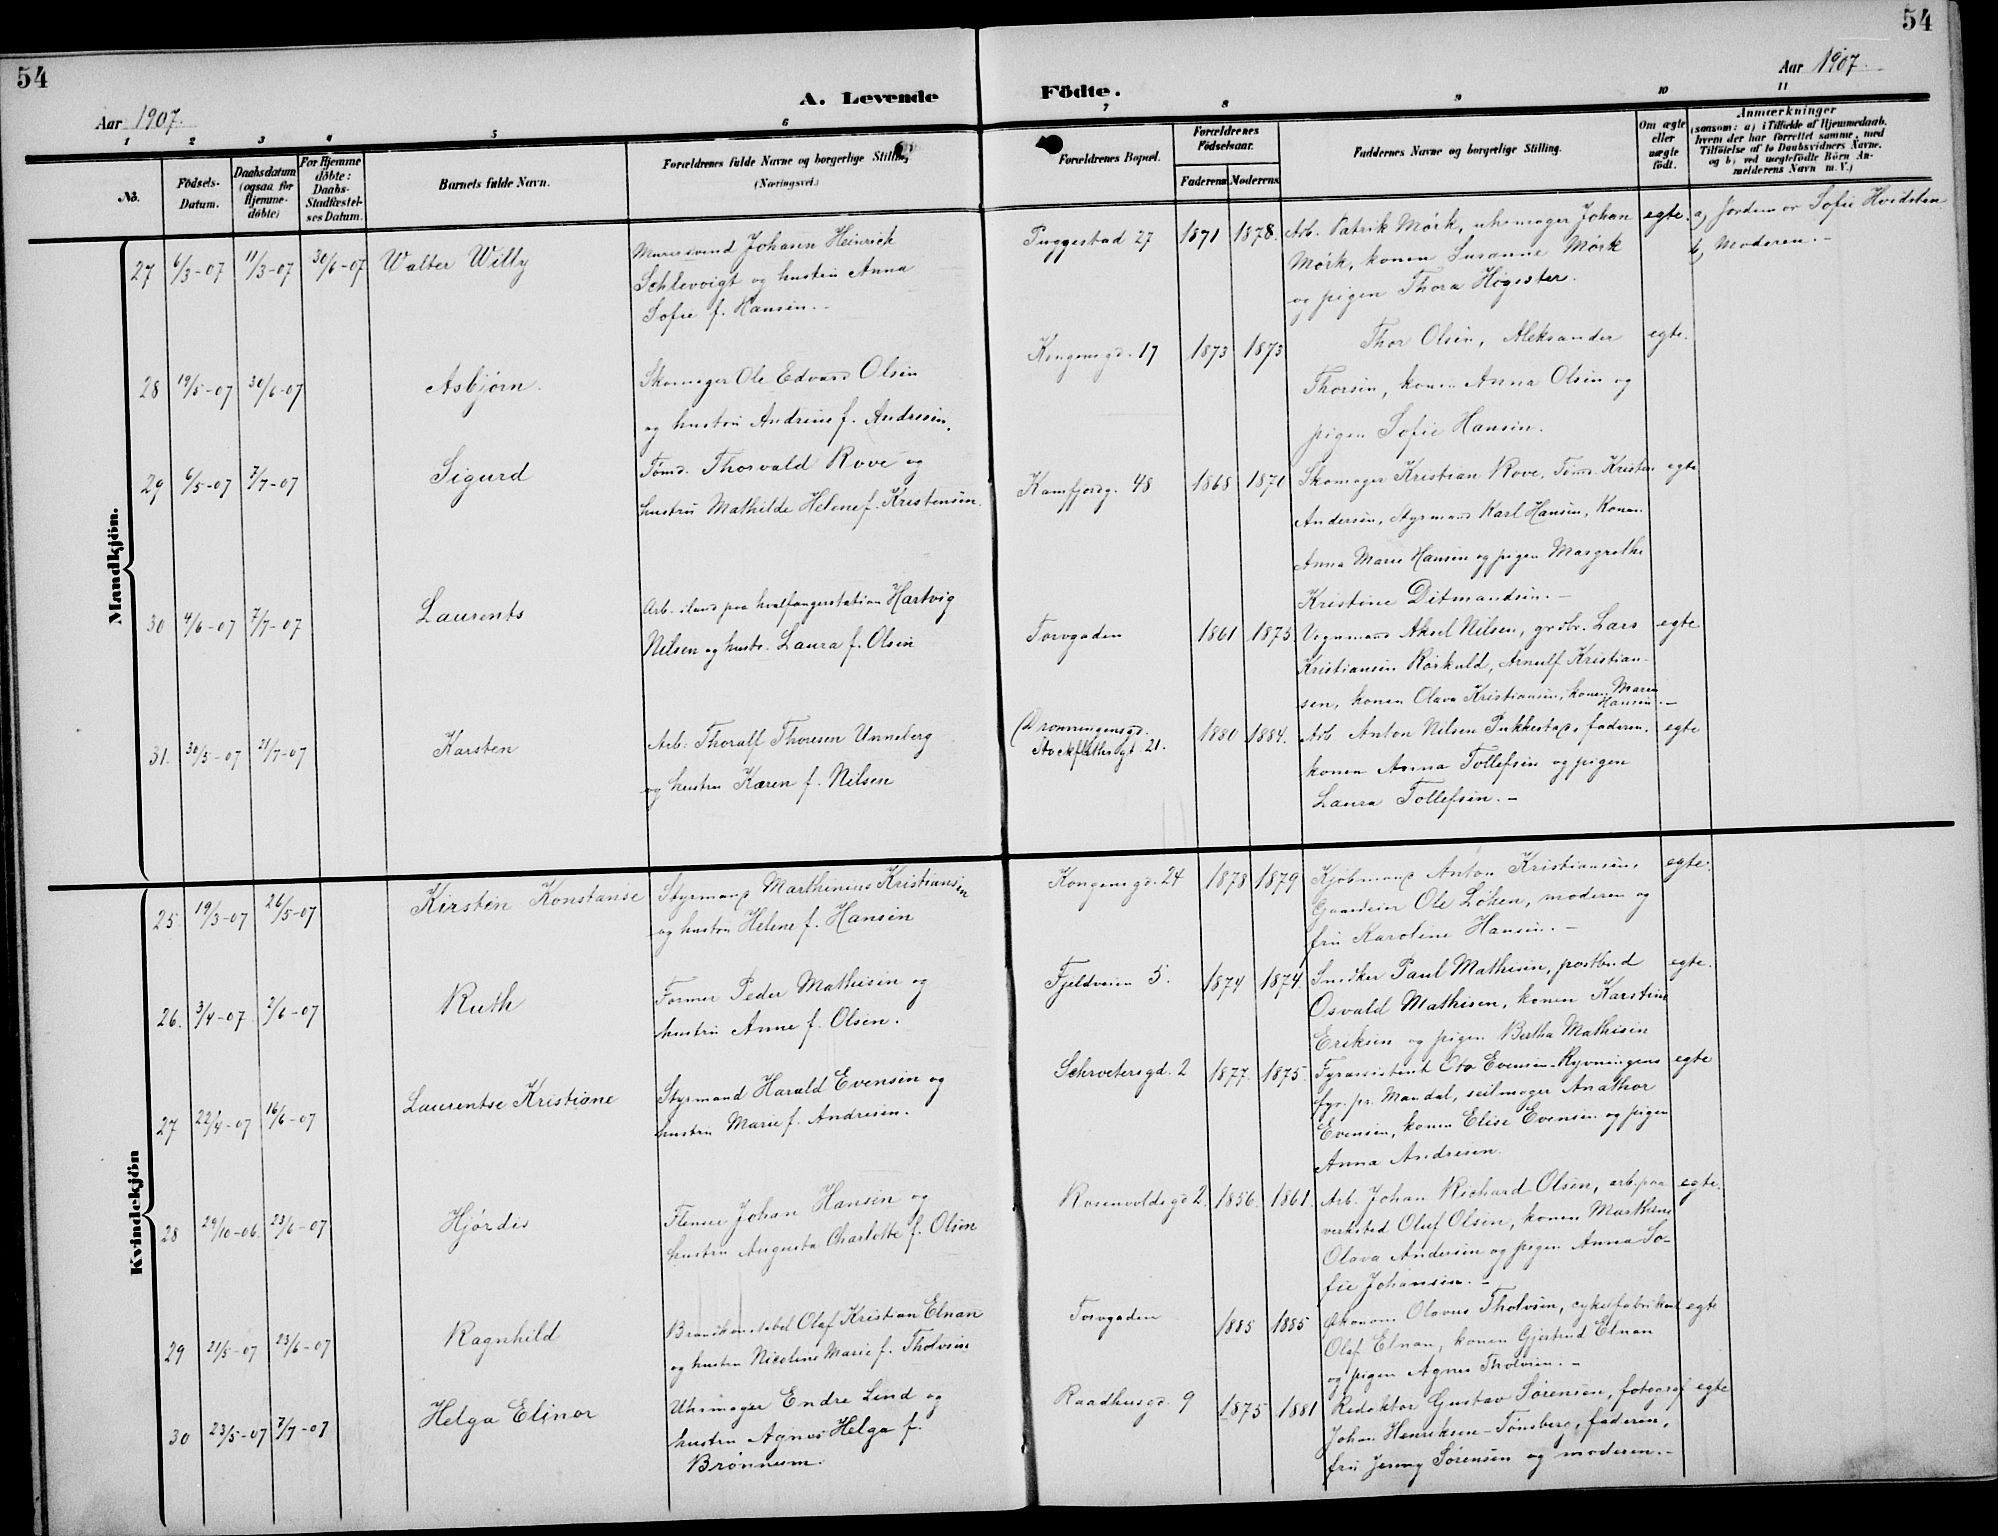 54
54
Aar 1907.
A. Levende
Födte.
Aar 1907.
1 2 3 4 5 6 7 8 9 10 11
Nò.
Födsels-Datum.
Daabsdatum (ogsaa for Hjemme-döbte)
For Hjemme döbte: Daabs-Stadfæstel-ses Datum.
Barnets fulde Navn.
Forældrenes fulde Navne og borgerlige Stilling
(Næringsvei.)
Forældrenes Bopæl.
Forældrenes Födselsaar.
Faderens
Moderens
Faddernes Navne og borgerlige Stilling.
Om ægte eller uægte födt.
Anmærkninger
(saasom: a) i Tilfælde af Hjemmedaab, hvem der har forrettet samme, med Tilföielse af to Daabsvidners Navne, og b) ved uægtefödte Börn An-melderens Navn m. V.)
Mandkjön.
27 6/3-07 11/3-07 30/6-07 Walter Willy
Murersvend Johann Heinrich
Schlevoigt og hustru Anna
Sofie f. Hansen.-
Puggestad 27 1871 1878.
Arb. Patrik Mørk, uhrmager Johan
Mørk, konen Susanne Mørk
og pigen Thora Høgseter.
egte.
a) Jordemor Sofie Hvidsten
b) Moderen.-
28 19/5-07 30/6-07 Asbjørn.
Skomager Ole Edvard Olsen
og hustru Andrine f. Andresen.
Kongensgd. 17 1873 1873
Thor Olsen, Aleksander
Thorsen, konen Anna Olsen og
pigen Sofie Hansen.
egte.
29 6/5-07 7/7-07 Sigurd
Tømd. Thorvald Rove og
hustru Mathilde Helene f. Kristensen.
Kamfjordg. 48 1868 1871
Skomager Kristian Rove, Tømd. Kristen
Andersen, Styrmand Karl Hansen, Konen
Anna Marie Hansen og pigen Margrethe
Kristine Ditmandsen.-
egte
30 4/6-07 7/7-07 Laurents
Arb. iland paa hvalfangerstation Hartvig
Nilsen og hustr. Laura f. Olsen
Torvgaden 1861 1875
Vognmand Aksel Nilsen, grdbr. Lars
Kristiansen Rørkuld, Arnulf Kristian-
sen, konen Olava Kristiansen, konen Maren
Hansen.-
egte
31. 30/5-07 21/7-07 Karsten
Arb. Thoralf Thoresen Unneberg
og hustru Karen f. Nilsen
(Dronningensgd.
Stockflethsgt 21. 1880 1884.
Arb Anton Nilsen Pukkestad, faderen,
konen Anna Tollefsen og pigen
Laura Tollefsen.-
egte
Kvindekjön
25. 19/3-07 26/5-07 Kirsten Konstanse
Styrmand Marthinius Kristiansen
og hustru Helene f. Hansen
Kongensgd. 24 1878 1879
Kjøbmand Anton Kristiansen,
Gaardeier Ole Løken, moderen og
fru Karoline Hansen.-
egte.
26. 3/4-07 2/6-07 Ruth
Former Peder Mathisen og
hustru Anne f. Olsen.
Fjeldveien 5. 1874 1874.
Snedker Paul Mathisen, postbud
Osvald Mathisen, konen Karstine
Eriksen og pigen Bertha Mathisen
egte.
27 22/4-07 16/6-07 Laurentse Kristiane
Styrmand Harald Evensen og
hustru Marie f. Andresen.
Schrøetersgd. 2 1877. 1875.
Fyrassistent Ole Evensen Ryvningens
fyr. pr. Mandal, seilmager Anathor
Evensen, konen Elise Evensen og pigen
Anna Andresen.
egte
28 29/10-06. 23/6-07 Hjørdis
Flenser Johan Hansen og
hustru Augusta Charlotte f. Olsen
Rosenvoldsgd 2. 1856. 1861.
Arb. Johan Richard Olsen, arb. paa
verksted Oluf Olsen, konen Marthine
Olava Andersen og pigen Anna So-
fie Johansen.-
egte.
29 21/5-07 23/6-07 Ragnhild
Brandkonstabel Olaf Kristian Elnan
og hustru Nicoline Marie f. Tholvsen
Torvgaden 1885 1885
Økonom Olavus Tholvsen, cykelfabrikant
Olaf Elnan, konen Gjertrud Elnan
og pigen Agnes Tholvsen.-
egte
30 23/5-07 7/7-07 Helga Elinor
Uhrmager Endre Lind og
hustru Agnes Helga f.
Brønnum.
Raadhusgd. 9 1875 1881
Redaktør Gustav Sørensen, fotograf
Johan Henriksen-Tønsberg, faderen,
fru Jenny Sørensen og moderen.-
egte